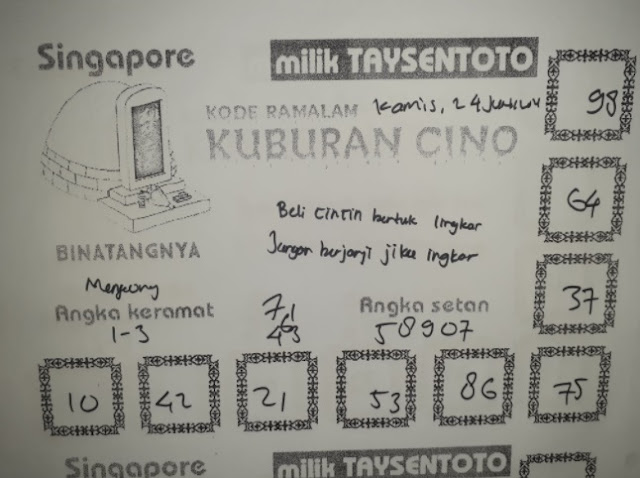 Singapore
milik TAYSENTOTO
98
KODE RAMALAM
Kamis, 24
KUBURAN CINO
64
Beli cincin bentuk lingkar
BINATANGNYA
Jangan berjanji jika ingkar
37
Angka keramat
7,1
Angka setan
1-3
463
58907
10
42
21
53
86
75
Singapore
milik TAYSENTOTO